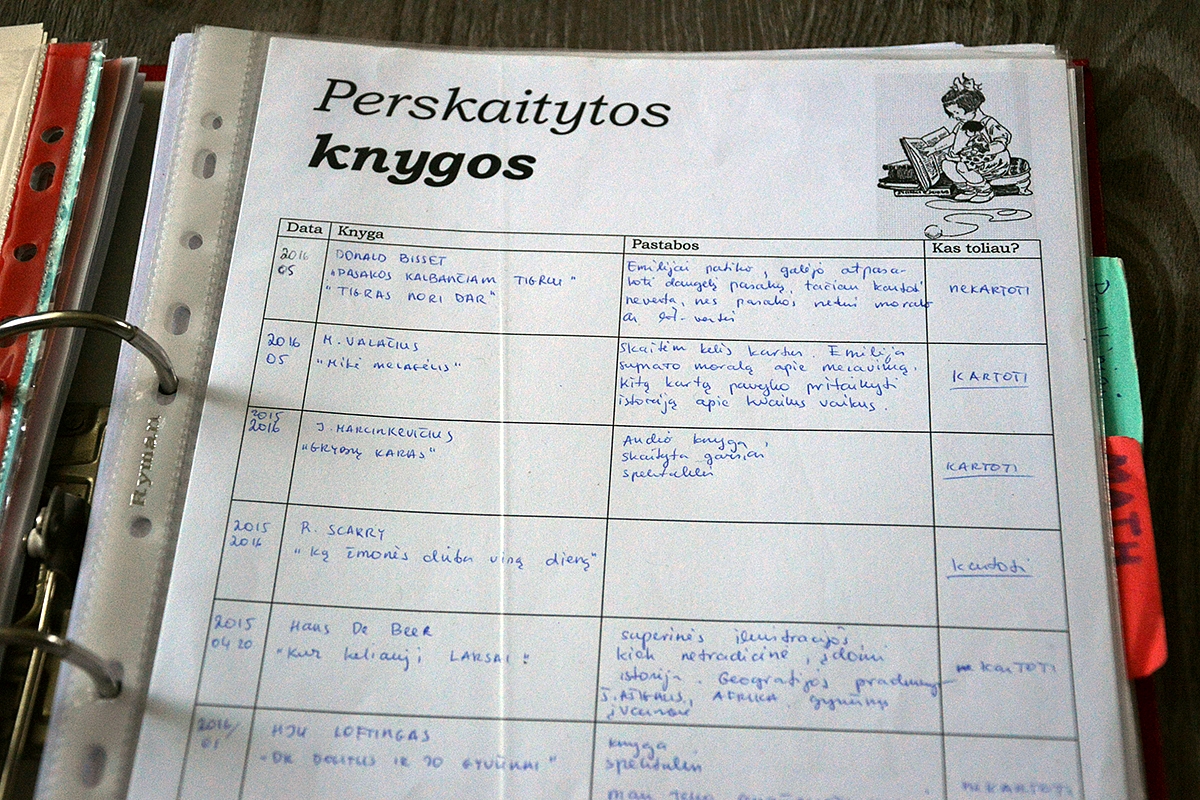 Perskaitytos
knygos
Data Knyga Pastabos Kas toliau?
2016
05
DONALD BISSET
"PASAKOS KALBANČIAM TIGRUI"
"TIGRAS NORI DAR"
Emilijai patiko, galėjo atpasa-
koti daugelį pasakų, tačiau kartoti
neverta, nes pasakos neturi moralo
ar
NEKARTOTI
2016
05
M. VALAČIUS
"Mikė melagėlis"
Skaitėm kelis kartus. Emilija
suprato moralą apie melavimą.
Kitą kartą pavyko pritaikyti
istoriją apie kvailus vaikus.
KARTOTI
2015
2016
J. MARCINKEVIČIUS
"GRYBŲ KARAS"
Audio knyga,
skaityta garsiai
spektaklis
KARTOTI
2015
2016
R. SCARRY
"Ką žmonės dirba visą dieną"
kartoti
2015
04 20
Hans De Beer
"Kur keliauji LARSAI"
superinės iliustracijos
kiek netradicinė, įdomi
istorija. Geografijos
Š. AŠIGALIS, AFRIKA, gyvūnų
įvairovė
KARTOTI
2016/
01
HJU LOFTINGAS
"DR DOLITLIS IR JO GYVŪNAI"
knyga
spektaklis
man
NEKARTOTI
Ryman
MATH